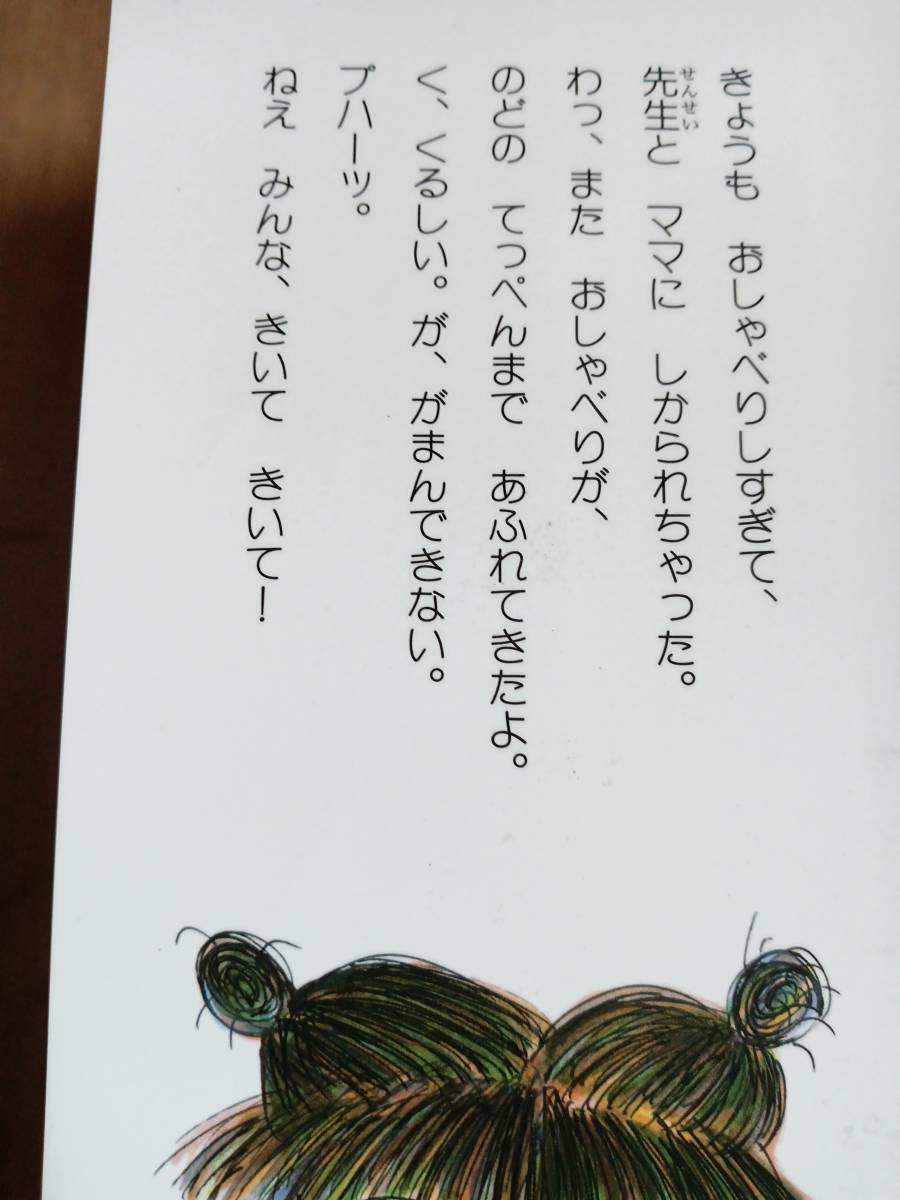 きょうも　おしゃべりしすぎて、
先生と　ママに　しかられちゃった。
せんせい
わっ、また　おしゃべりが、
のどの　てっぺんまで　あふれてきたよ。
く、くるしい。が、がまんできない。
プハーッ。
ねえ　みんな、きいて　きいて！